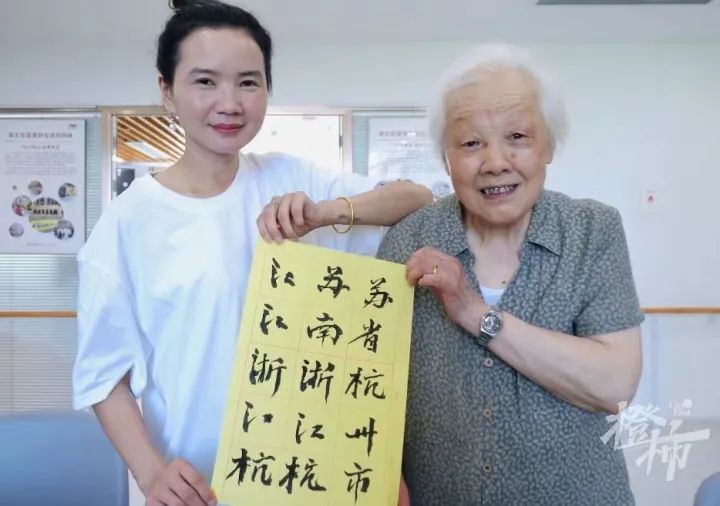 苏省杭州市
苏南浙江杭
江江浙江杭
橙柿